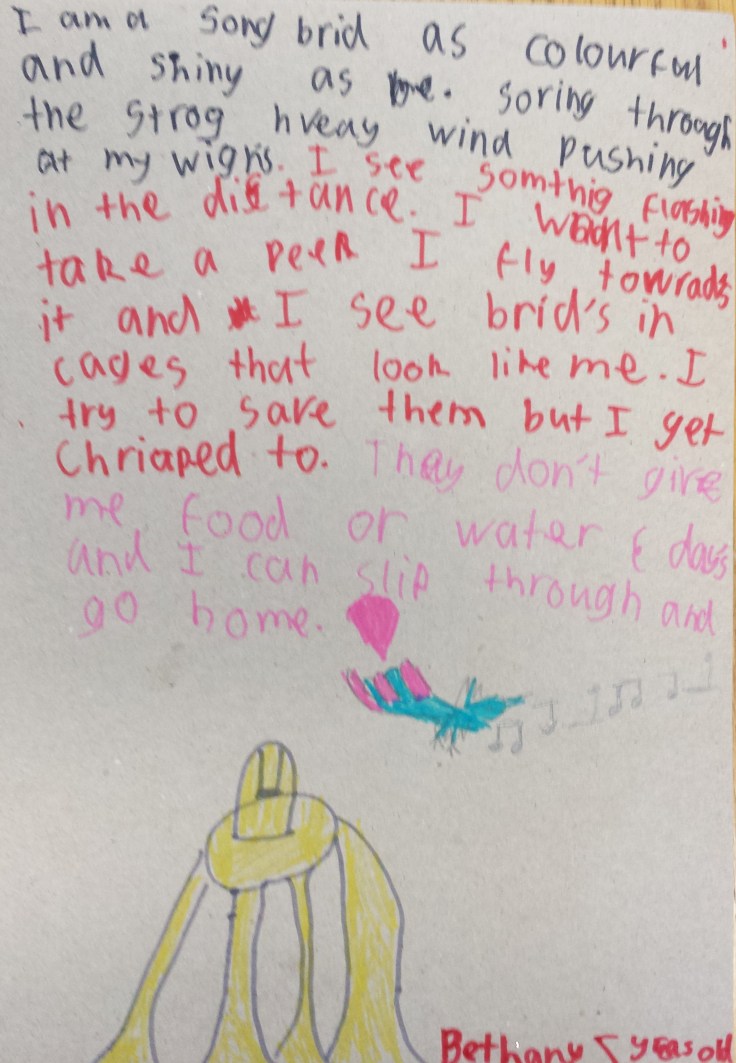 I am a song brid as colourful
and shiny as me. soring through
the strog hveay wind pushing
at my wigns. I see somthig flashing
in the distance. I want to
take a peek I fly towrads
it and I see brid's in
cages that look like me. I
try to save them but I get
Chriaped to. They don't give
me food or water days
and I can slip through and
go home.
Bethany yeas old